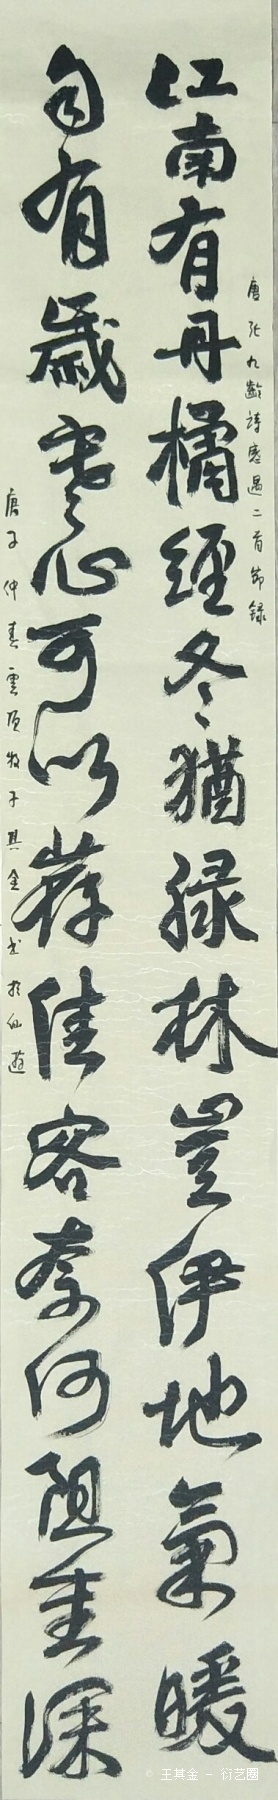 江南有丹橘經冬猶緑林豈伊地氣暖
自有歲寒心可以荐佳客奈何阻重深
唐張九齡詩感遇二首節録
庚子仲春雲頂牧子其金书於仙遊
© 王其金 - 衍艺圈